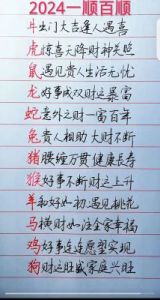 2024一顺百顺
牛出门大吉逢人遇喜
虎惊喜天降财神关照
鼠遇见贵人生活无忧
龙好事成双财之暴富
蛇意外之财一富百年
兔贵人相助大财不断
猪腰缠万贯健康长寿
猴好事不断财之上升
羊和好如初遇见桃花
马横财如注全家幸福
鸡好事连连愿望实现
狗财之旺盛家庭兴旺